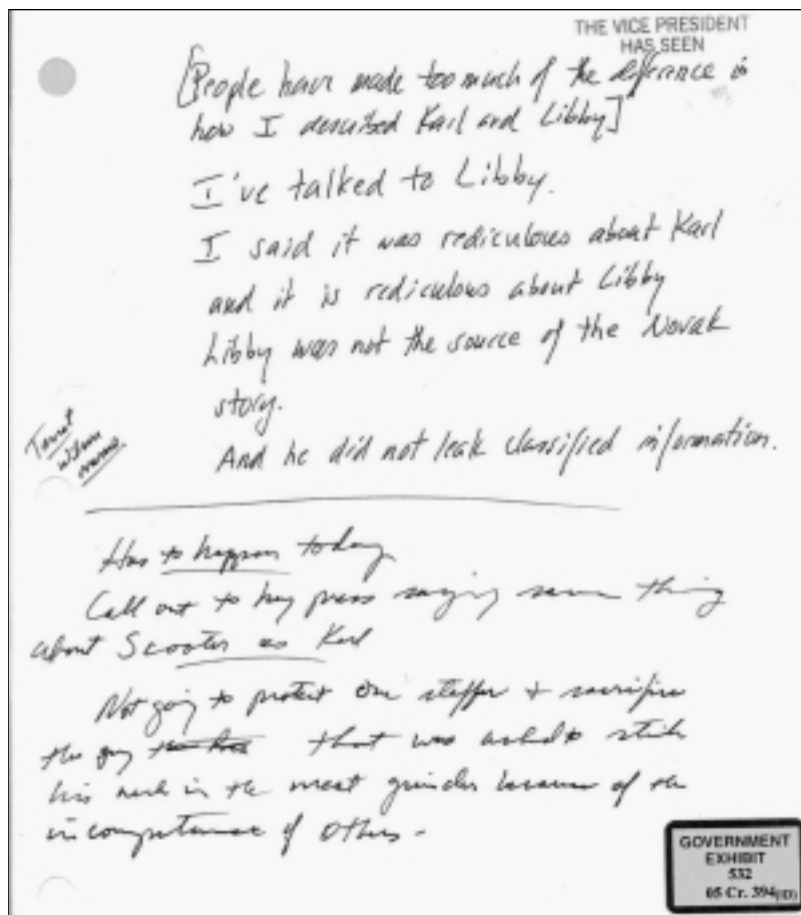 THE VICE PRESIDENT
HAS SEEN
[People have made too much of the deference in
how I described Karl and Libby]
I've talked to Libby.
I said it was rediculous about Karl
and it is rediculous about Libby
Libby was not the source of the Novak
story.
And he did not leak classified information.
Tenet
Wilson
memo
Has to happen today
Call out to key press saying same thing
about Scooter as Karl
Not going to protect one staffer + sacrifice
the guy that was asked to stick
his neck in the meat grinder because of the
incompetance of others -
GOVERNMENT
EXHIBIT
532
05 Cr. 394 (ID)